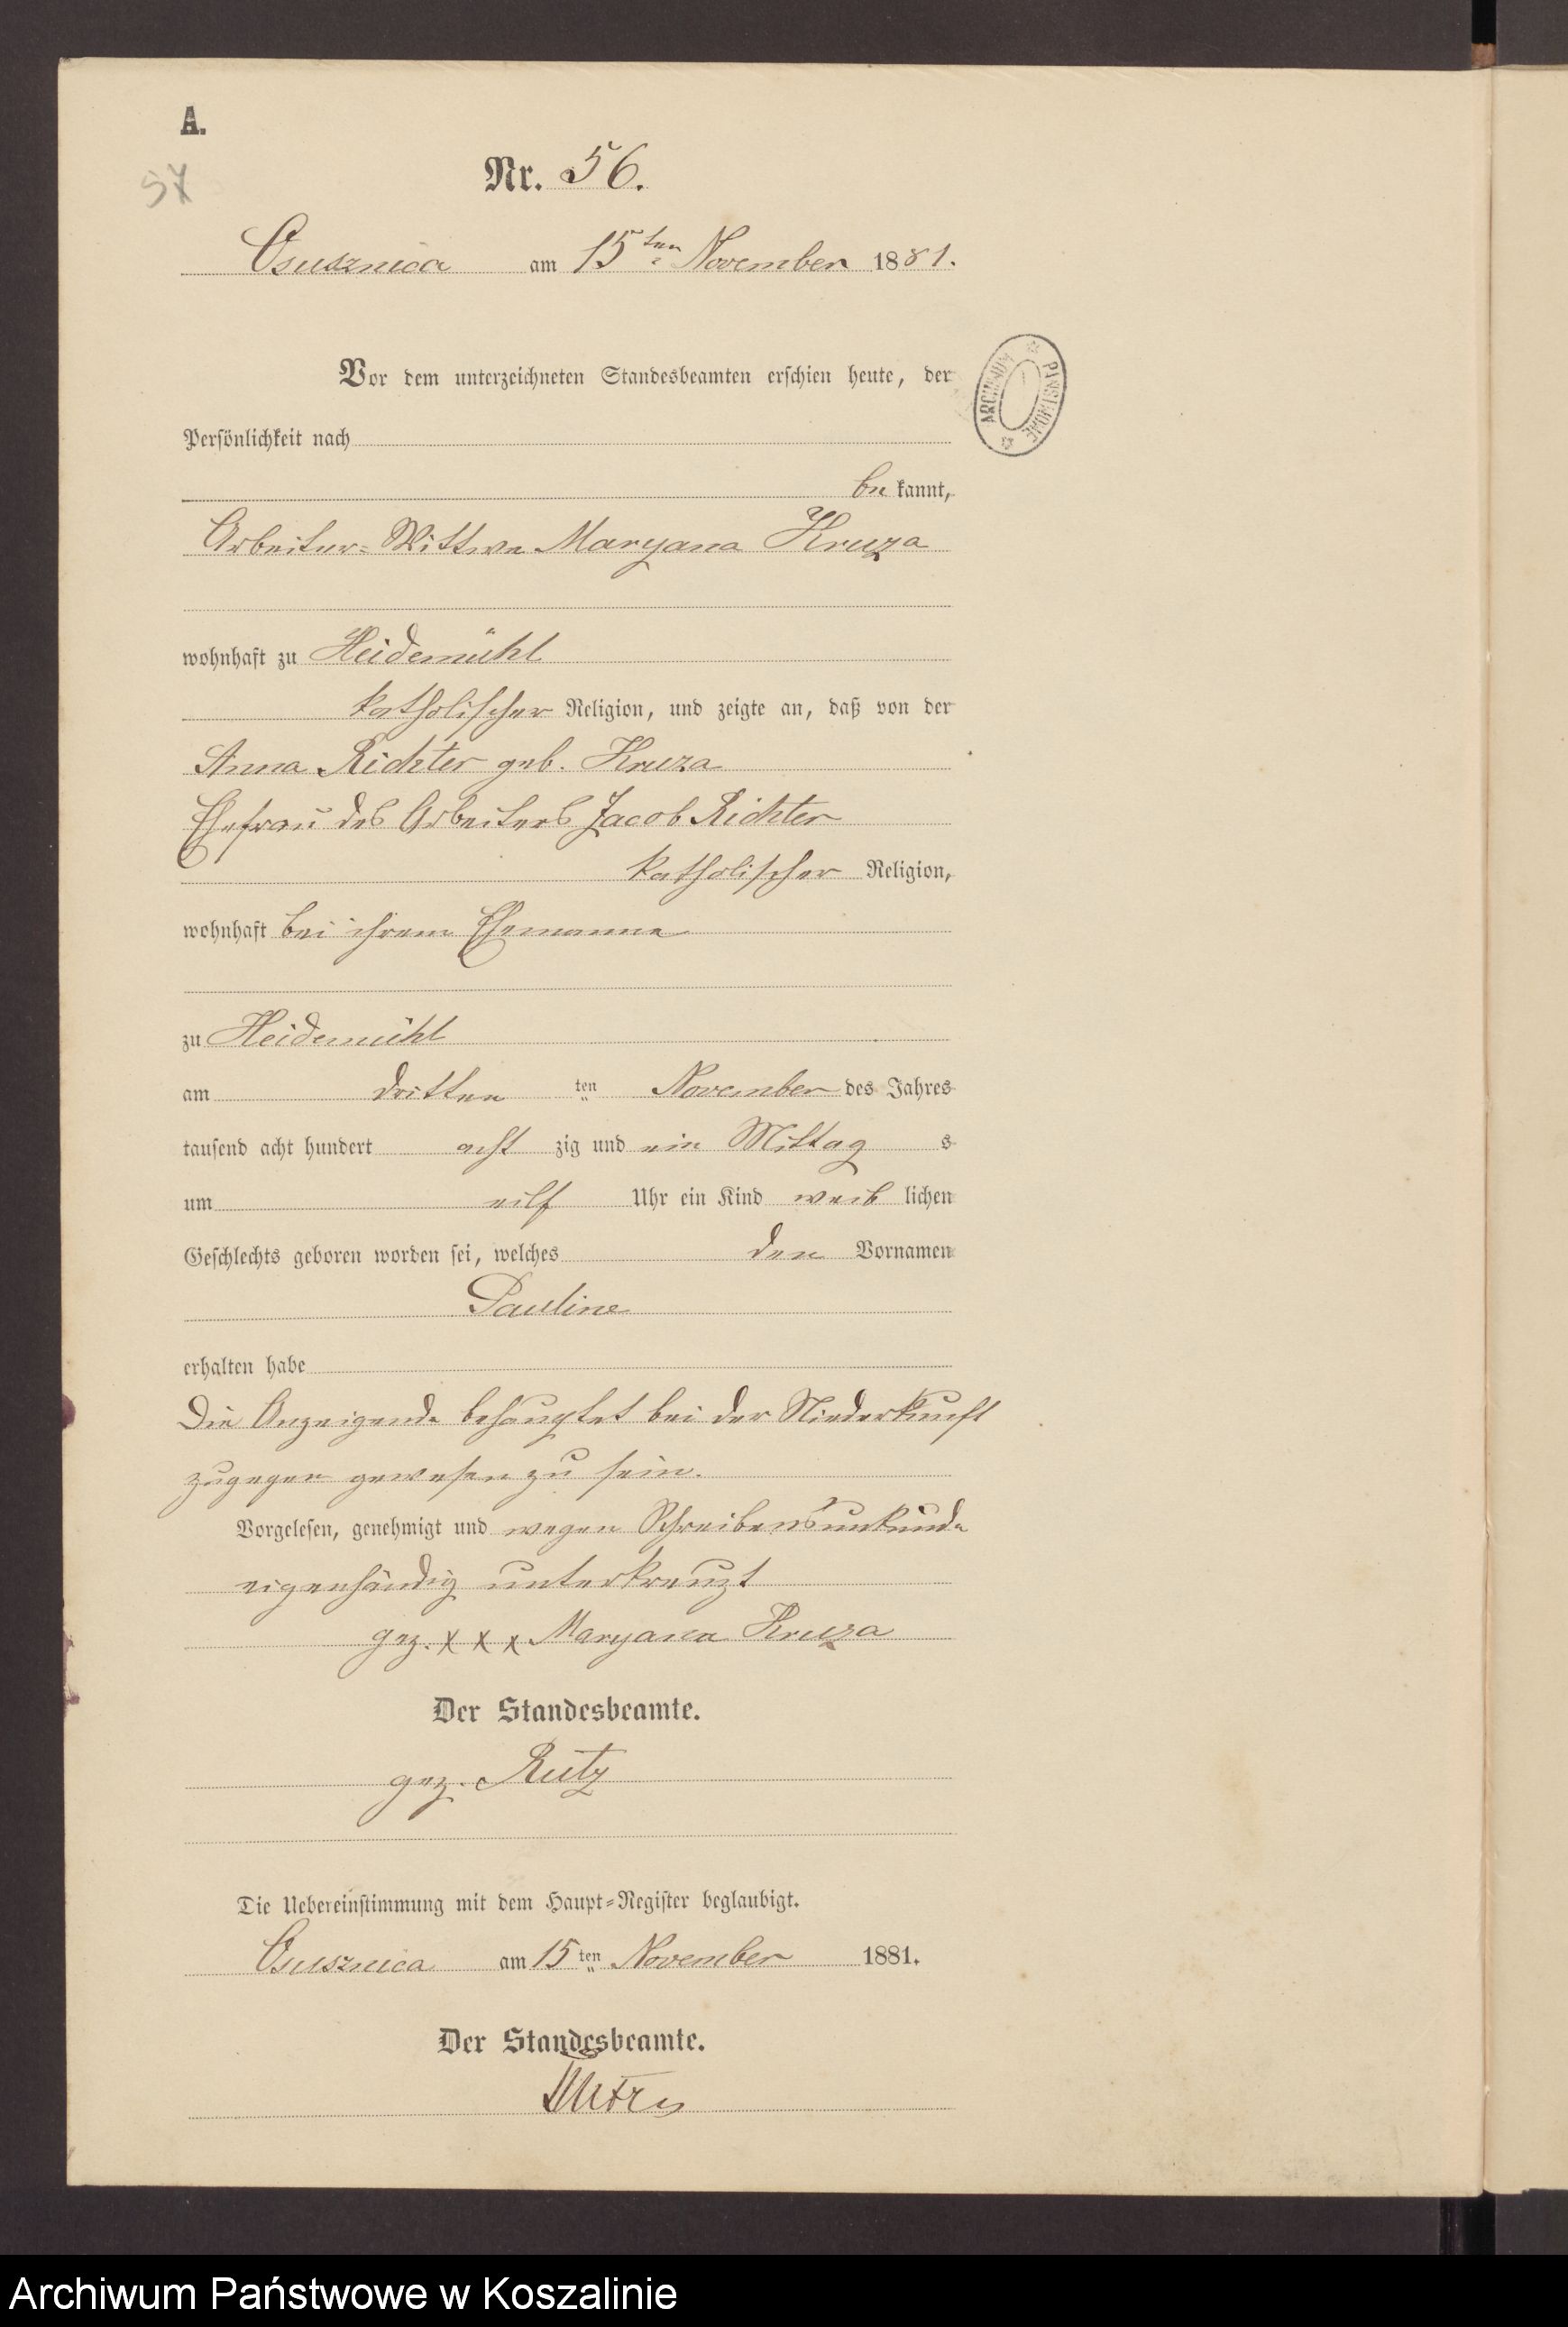 A.
57
Nr. 56.
Osusznica am 15ten November 1881.
Vor dem unterzeichneten Standesbeamten erschien heute, der
Persönlichkeit nach
be kannt,
Arbeiter-Wittwe Maryana Kruza
wohnhaft zu Heidemühl
katholischer Religion, und zeigte an, daß von der
Anna Richter geb. Kruza
Ehefrau des Arbeiters Jacob Richter
katholischer Religion,
wohnhaft bei ihrem Ehemanne
zu Heidemühl
am dritten ten November des Jahres
tausend acht hundert acht zig und ein Mittag s
um eilf Uhr ein Kind weib lichen
Geschlechts geboren worden sei, welches den Vornamen
Pauline
erhalten habe
Die Anzeigende behauptet bei der Niederkunft
zugegen gewesen zu sein.
Vorgelesen, genehmigt und wegen Schreibensunkunde
eigenhändig unterkreuzt
gez. x x x Maryana Kruza
Der Standesbeamte.
gez. Rutz
Die Uebereinstimmung mit dem Haupt-Register beglaubigt.
Osusznica am 15 ten November 1881.
Der Standesbeamte.
Rutz
ARCHIWUM PAŃSTWOWE
Archiwum Państwowe w Koszalinie